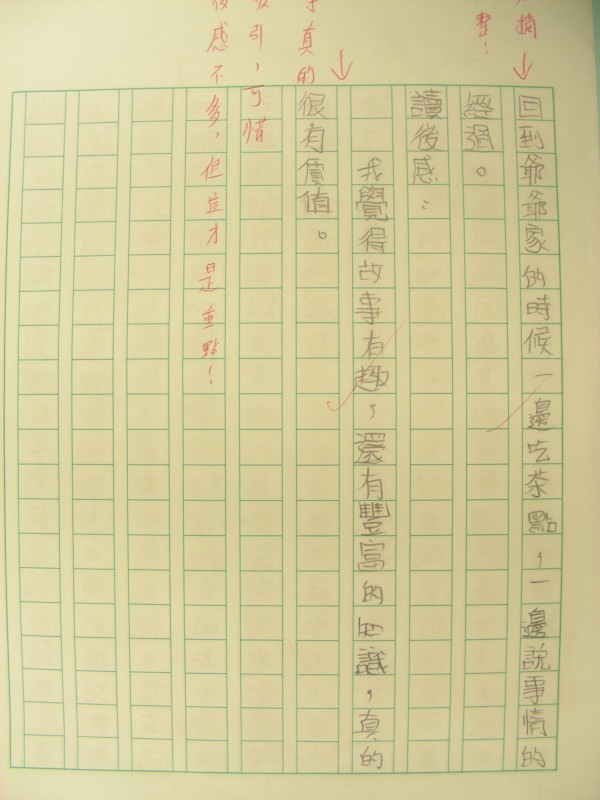 回到爺爺家的時候一邊吃茶點，一邊說事情的
經過。
讀後感：
我覺得故事有趣，還有豐富的知識，真的
很有價值。
摘
整！
真的
引，可惜
感不多，但這才是重點！